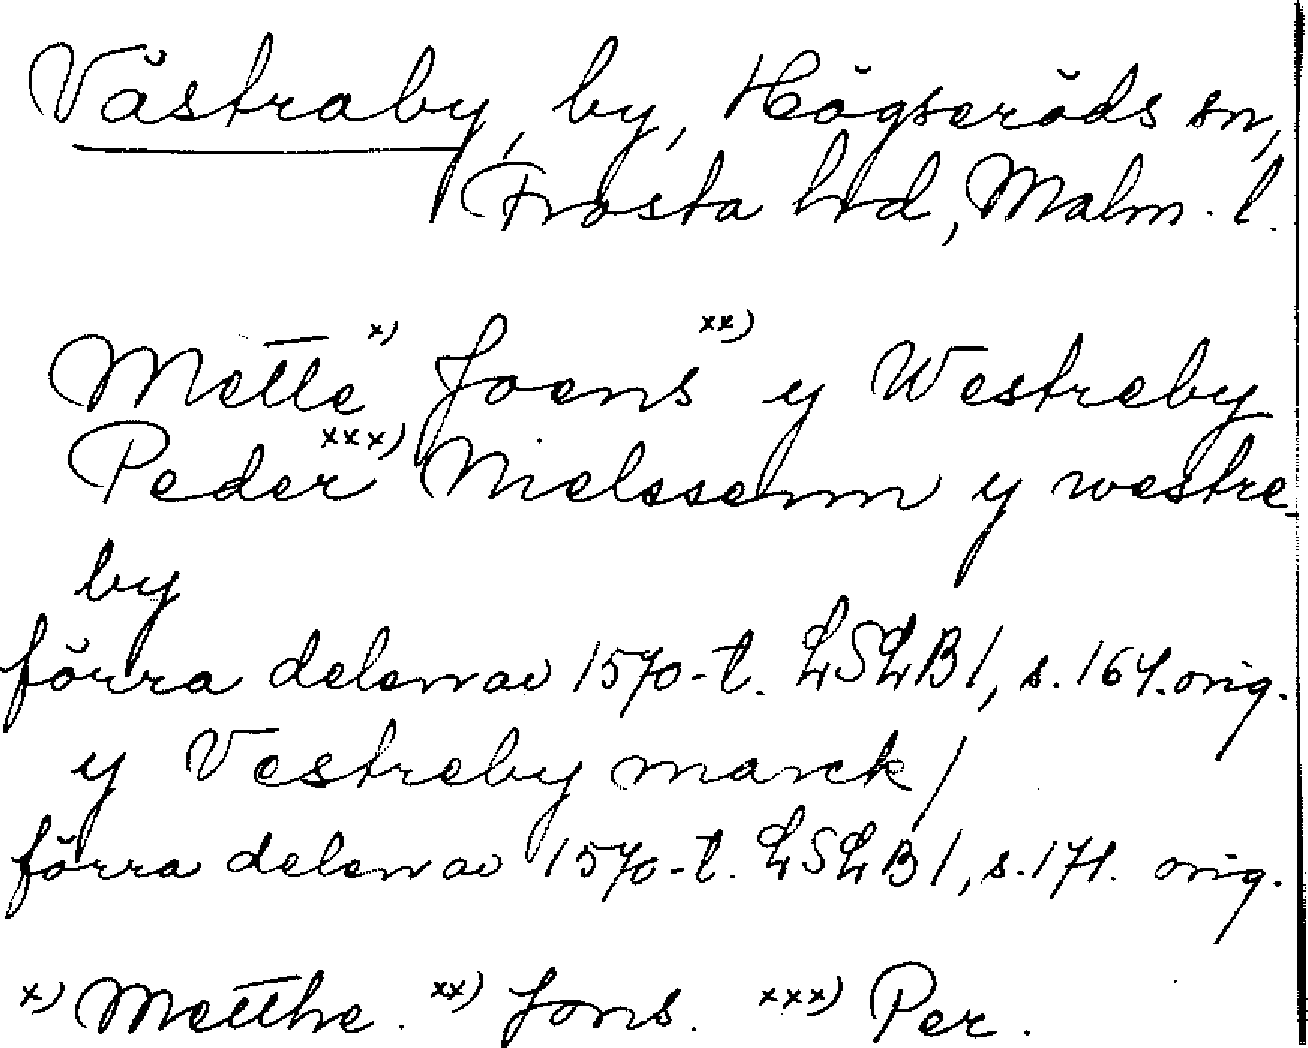 Västraby, by, Högseröds sn,
Frosta hd, Malm. l.
Mette x) Joens xx) y Westreby
Peder xxx) Nielssenn y westre-
by
förra delen av 1570-t. LSLB 1, s. 164. orig.
y Vestreby marck /
förra delen av 1570-t. LSLB 1, s. 171. orig.
x) Metthe. xx) Jons. xxx) Per.